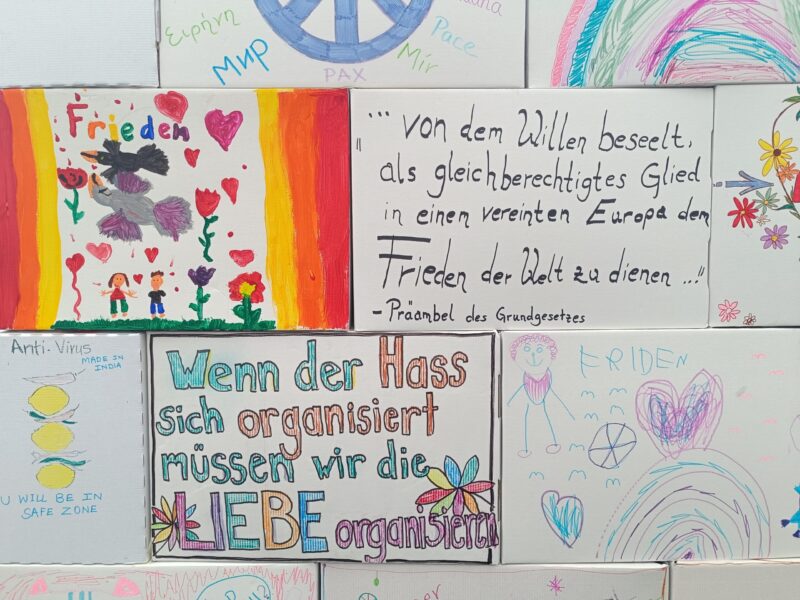 ειρήνη
Мир
PAX
Mír
Pace
Frieden
"... von dem Willen beseelt,
als gleichberechtigtes Glied
in einem vereinten Europa dem
Frieden der Welt zu dienen ..."
- Präambel des Grundgesetzes
Anti-Virus
MADE IN
INDIA
U WILL BE IN
SAFE ZONE
Wenn der Hass
sich organisiert
müssen wir die
LIEBE organisieren
FRIDEN